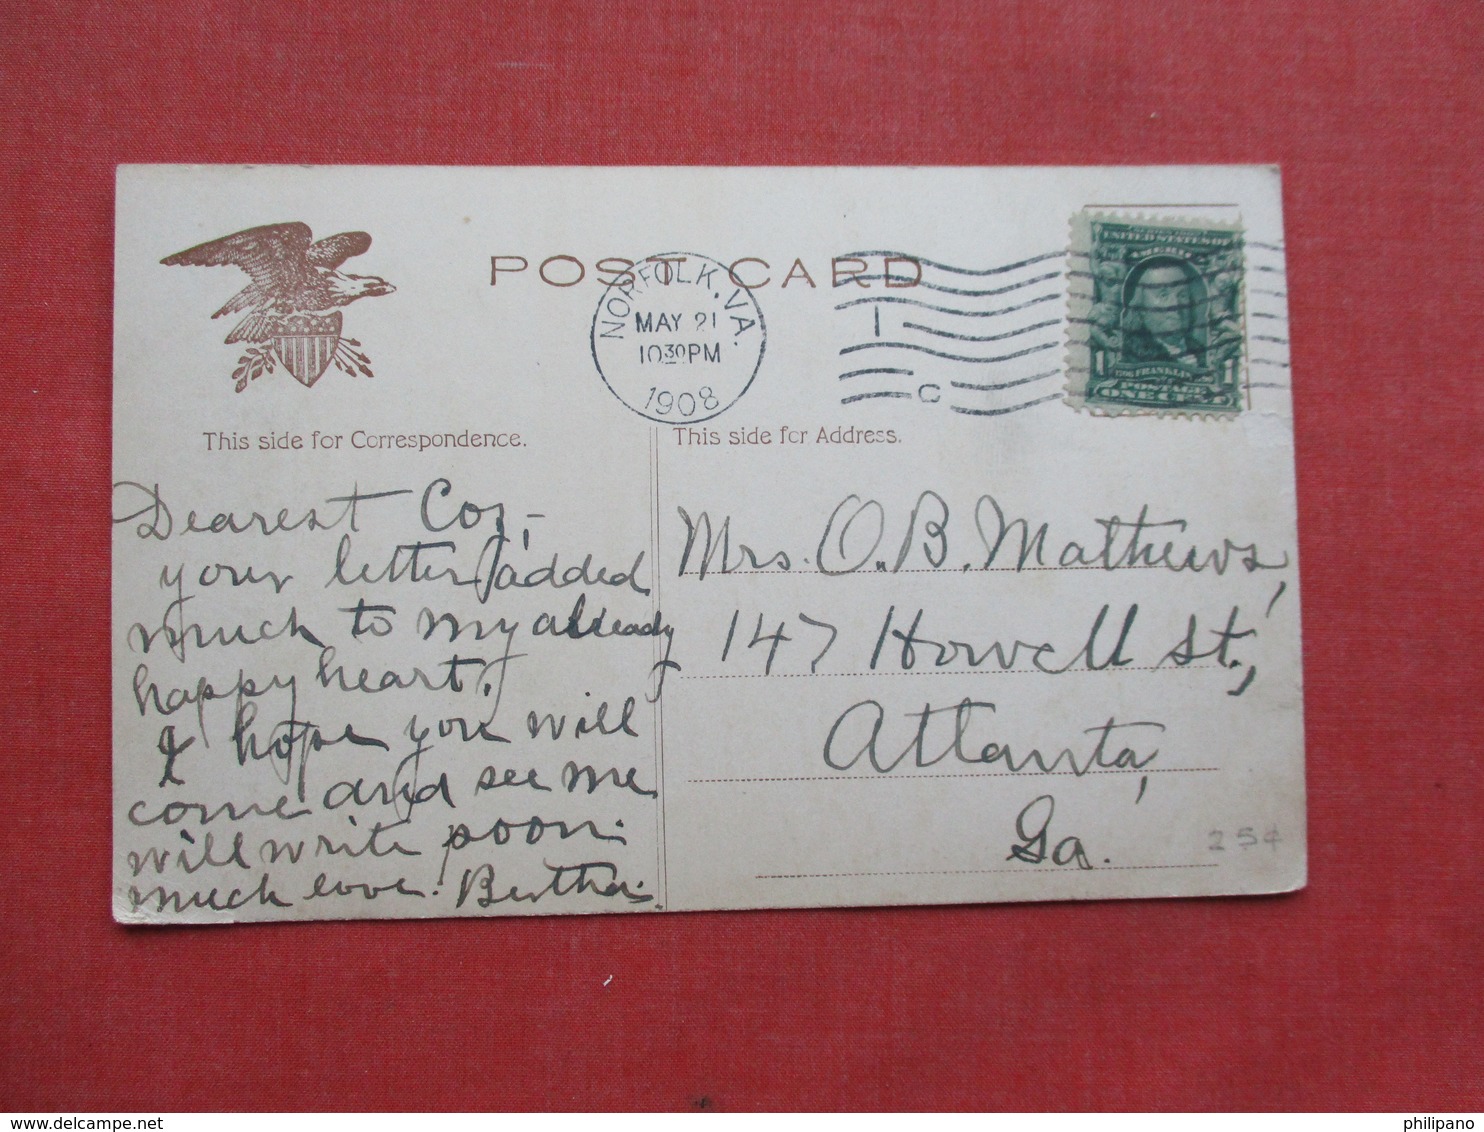 POST CARD
NORFOLK, VA.
MAY 21
10 30 PM
1908
1
C
UNITED STATES OF
AMERICA
1 FRANKLIN 1
POSTAGE
ONE CENT
This side for Correspondence.
This side for Address.
Dearest Coz,-
your letter added
much to my already
happy heart.
I hope you will
come and see me
will write soon.
much love. Bertha.
Mrs. O. B. Mathews,
147 Howell St.,
Atlanta,
Ga.
254
www.delcampe.net
philipano